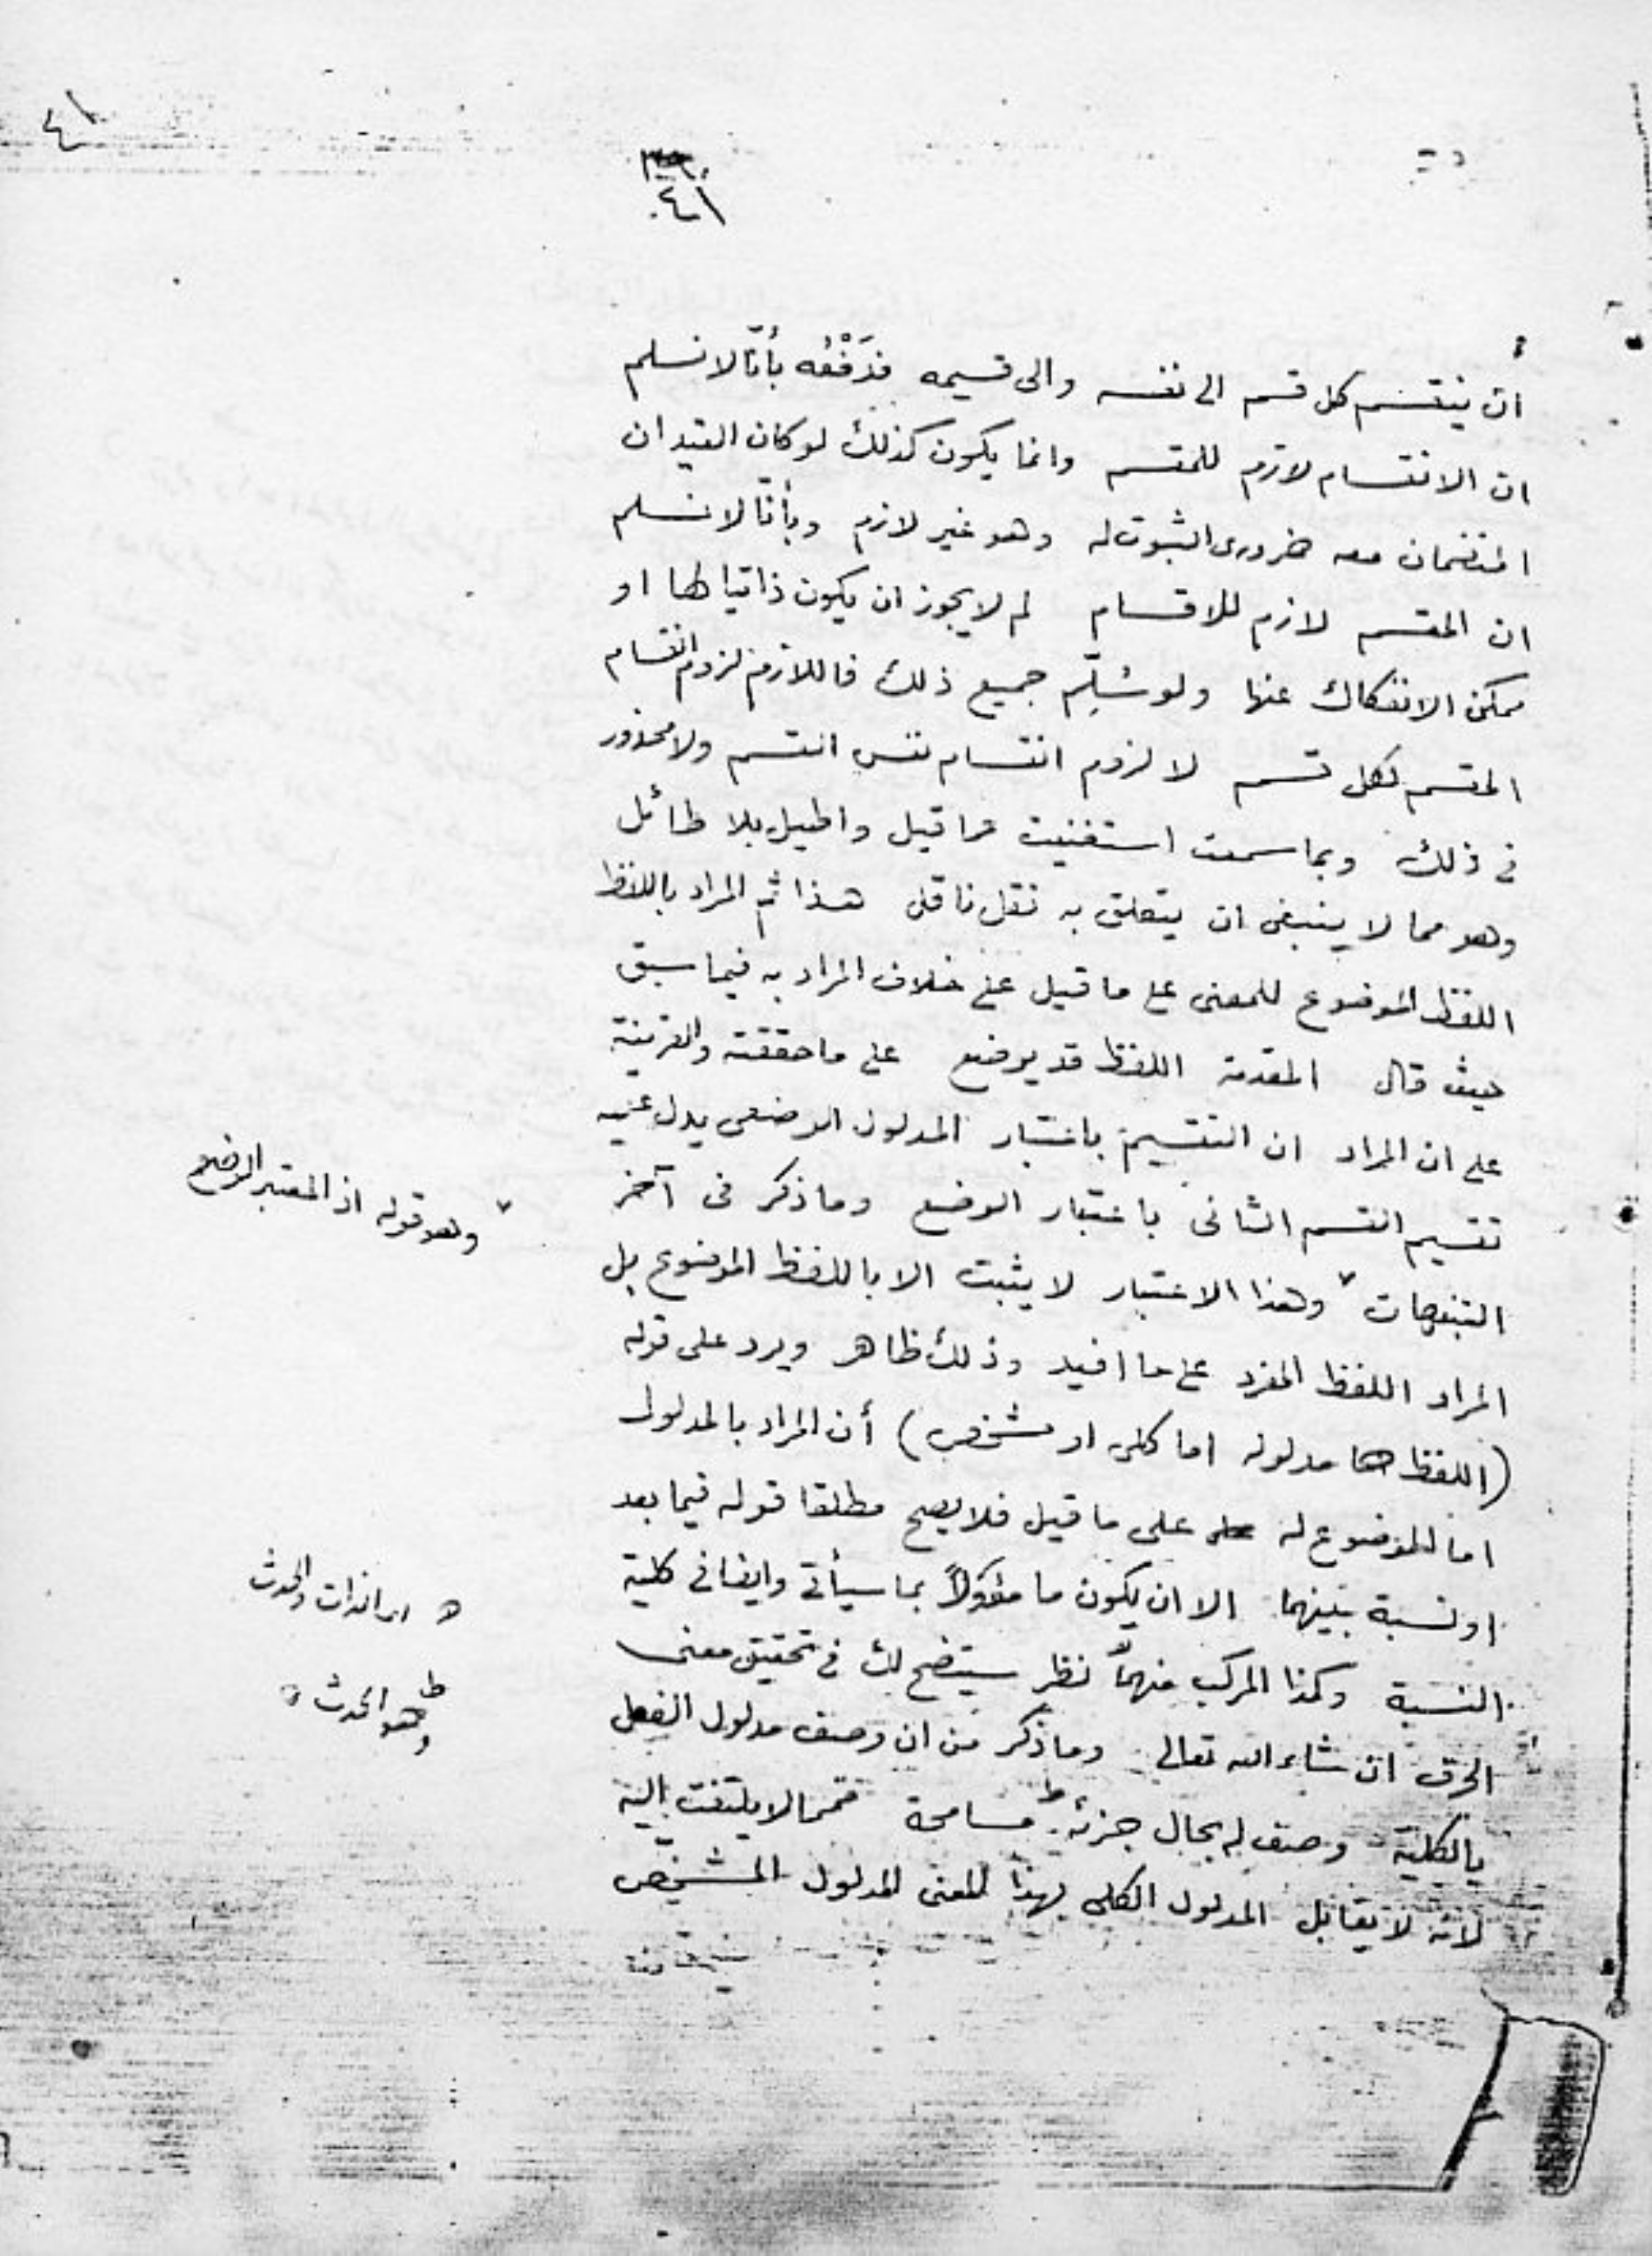 ٤١
٤١
ان ينقسم كل قسم الى نفسه والى قسيمه فدَفْعُه بأنّا لا نسلم
ان الانقسام لازم للمقسم وانما يكون كذلك لو كان القيدان
المنضمان معه ضرورى الثبوت له وهو غير لازم وبأنّا لا نسلم
ان المقسم لازم للاقسام لم لا يجوز ان يكون ذاتيا لها او
ممكن الانفكاك عنها ولو سُلِّم جميع ذلك فاللازم لزوم انقسام
المقسم لكل قسم لا لزوم انقسام نفس القسم ولا محذور
فى ذلك وبما سمعت استغنيت عما قيل واطيل بلا طائل
وهو مما لا ينبغى ان يتعلق به نقل ناقل هذا ثم المراد باللفظ
اللفظ الموضوع للمعنى على ما قيل على خلاف المراد به فيما سبق
حيث قال المقدمة اللفظ قد يوضع على ما حققته والقرينة
على ان المراد ان التقسيم باعتبار المدلول الوضعى يدل عليه
تقسيم القسم الثانى باعتبار الوضع وما ذكر فى آخر
التنبيهات ٧ وهذا الاعتبار لا يثبت الا باللفظ الموضوع بل
٧ وهو قوله اذ المعتبر الوضع
المراد اللفظ المفرد على ما افيد وذلك ظاهر ويرد على قوله
(اللفظ مدلوله اما كلى او مشخص) أن المراد بالمدلول
اما الموضوع له على ما قيل فلا يصح مطلقا قوله فيما بعد
او نسبة بينهما الا ان يكون ما مؤولاً بما سيأتى وايضا فى كلية
ه الذات والحدث
النسبة وكذا المركب منهما ه نظر سيتضح لك فى تحقيق معنى
ط وهو الحدث
الحرف ان شاء الله تعالى وما ذكر من ان وصف مدلول الفعل
بالكلية وصف له بحال جزئه ط مسامحة فمما لا يلتفت اليه
لانه لا يقابل المدلول الكلى بهذا المعنى المدلول المشخص